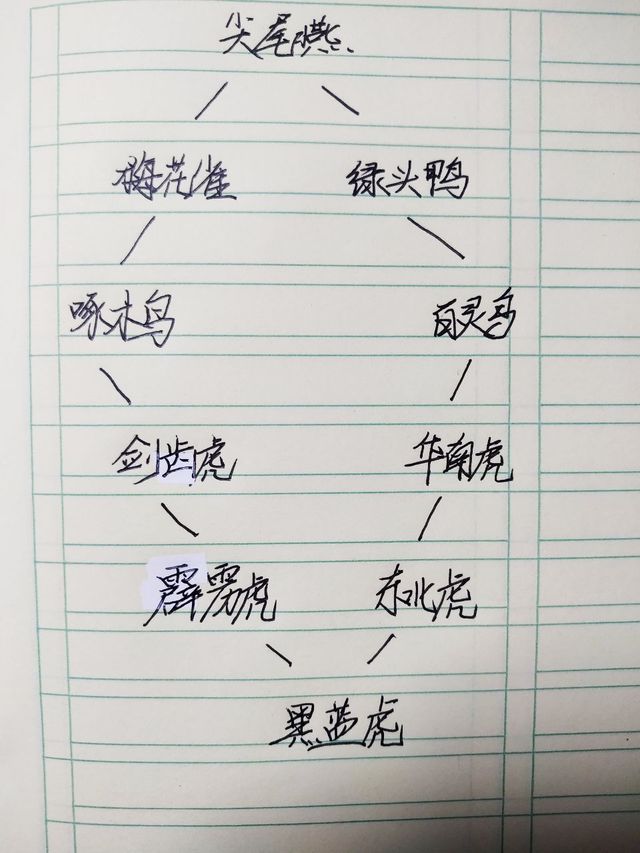 尖尾燕
梅花雀 绿头鸭
啄木鸟 百灵鸟
剑齿虎 华南虎
霹雳虎 东北虎
黑蓝虎